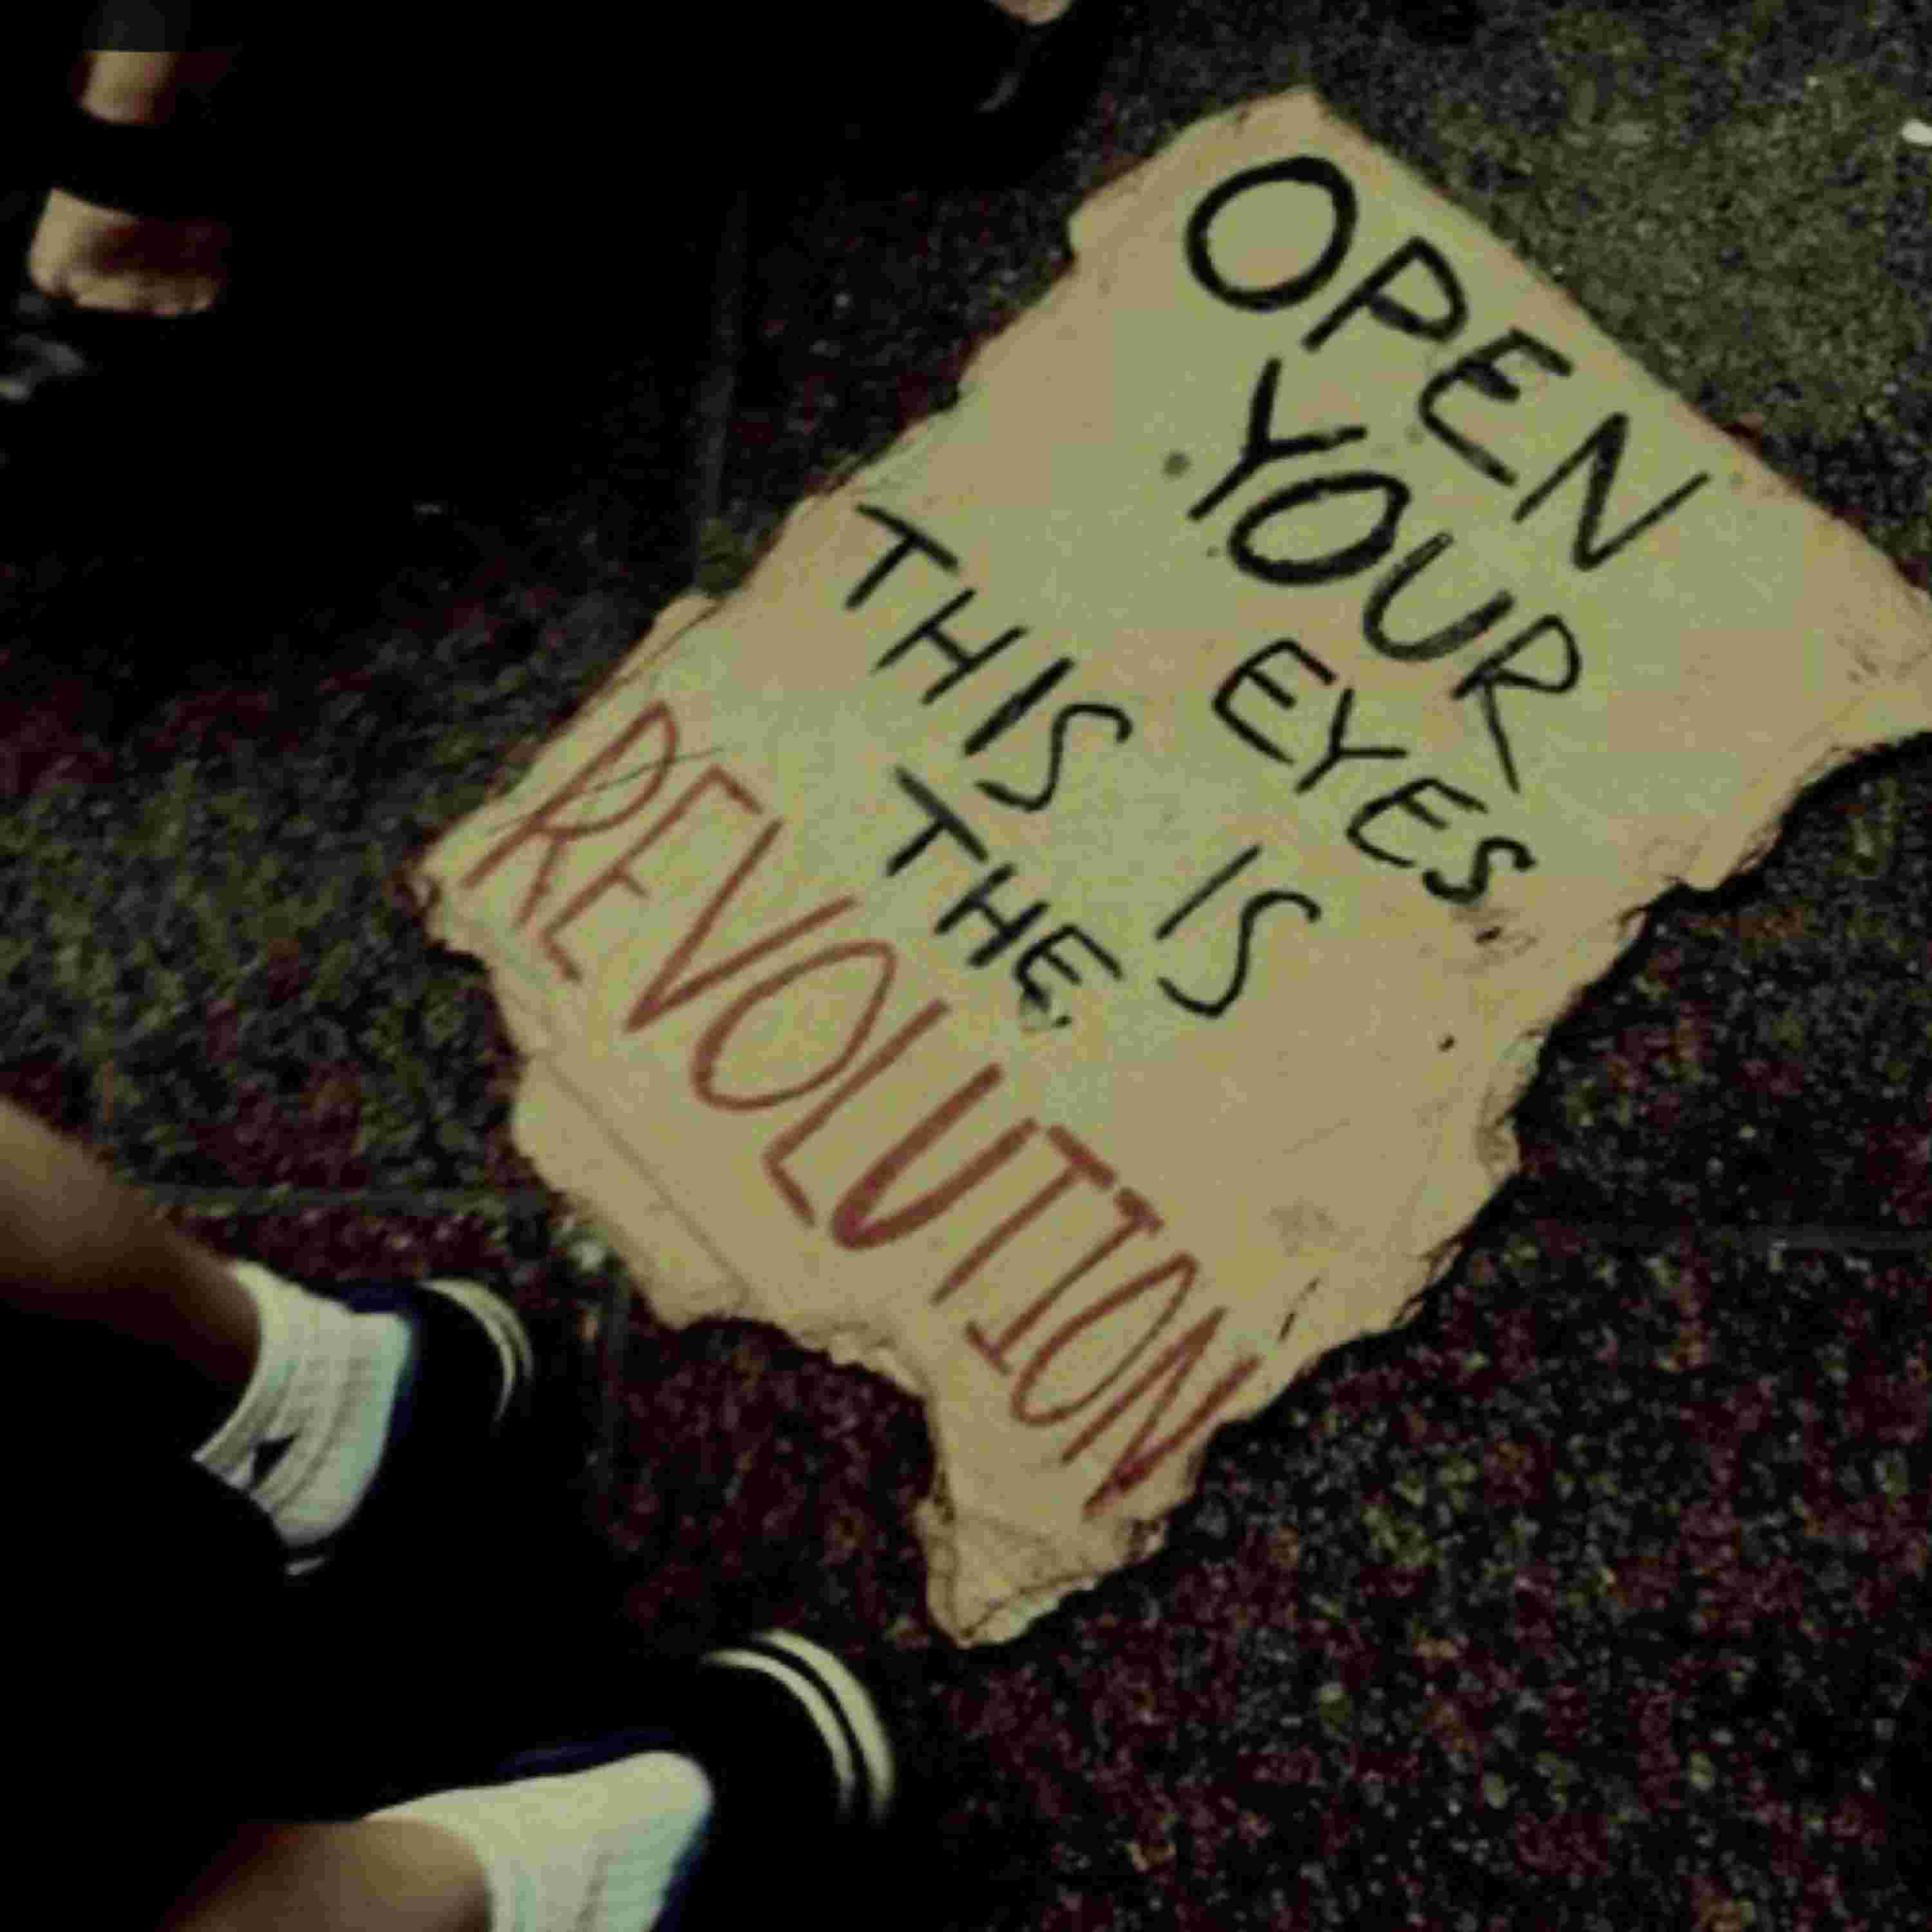 OPEN
YOUR
EYES
THIS IS
THE
REVOLUTION